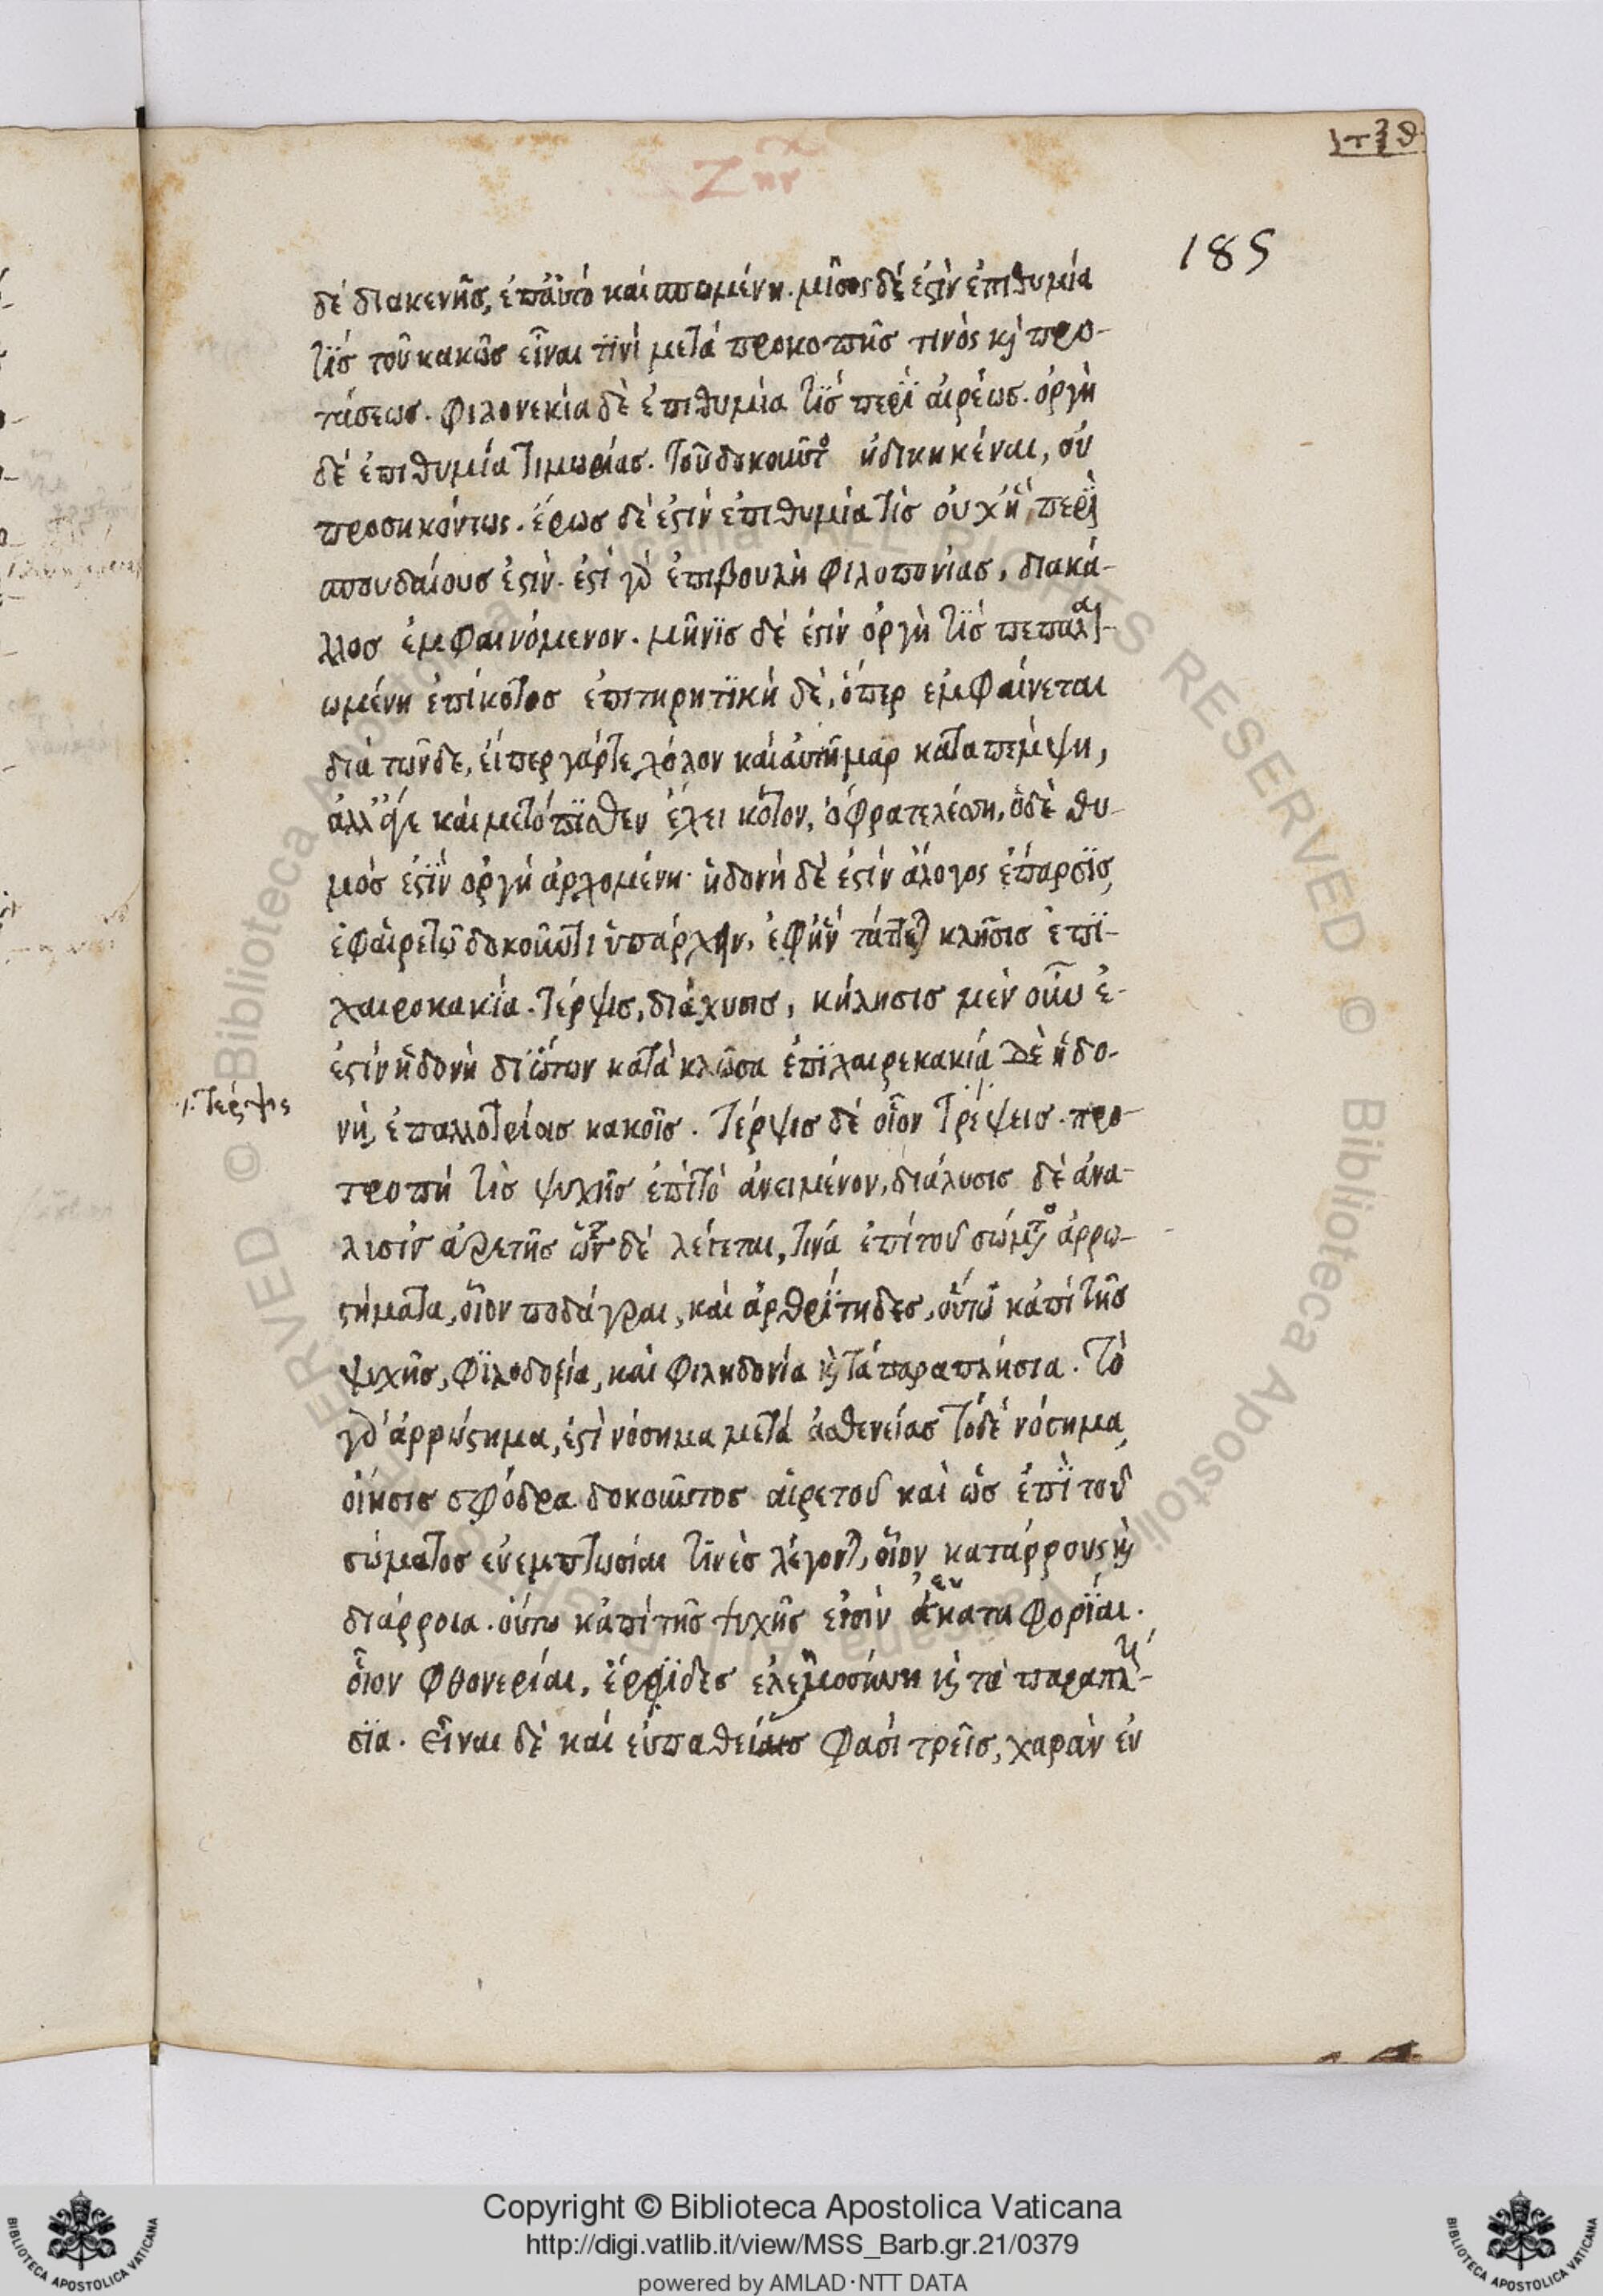 Ζην
185
δὲ διακενῆσ, ἐπἀυτό και σπωμένη. μῖσος δέ ἐςὶν ἐπιθυμία
τϊσ τοῦ κακῶσ εἶναι τϊνὶ μετά προκοπῆσ τινὸς κ προ-
τάσεως. φιλονεκία δὲ ἐπιθυμία τϊσ περϊ αἱρέωσ. ὀργὴ
δέ ἐπιθυμία τιμωρίασ. τοῦ δοκοῦντο ἠδικηκέναι, οὐ
προσηκόντως. ἔρωσ δὲ ἐςὶν ἐπιθυμία τὶσ οὐχῂ περϊ
σπουδαίουσ ἐςὶν. ἐςὶ γδ ἐπιβουλὴ φιλοπονίασ, διακά-
λλοσ ἐμφαινόμενον. μῆνϊσ δέ ἐςιν ὀργὴ τϊσ πεπαλαι-
ωμένη ἐπίκοτοσ ἐπιτηρητϊκὴ δὲ, ὅπερ εμφαίνεται
διὰ τῶνδε, εἴπερ γάρτε χόλον καὶ αυτῆμαρ καταπέμψη,
καὶ μετόπϊσθεν ἔχει κότον, ὄφρα τελέσση, ὁδὲ θυ-
μόσ ἐςϊν ὀργή ἀρχομένη. ἡδονή δὲ ἐςὶν ἄλογος ἔπαρσϊσ,
ἐφαἱρετῶ δοκοῦντι ὑπάρχην, ἐφἣν τάττε κλησισ ἐπϊ-
χαιροκακϊα. τέρψισ, διάχυσισ, κήλησισ μὲν οὖν ἐ-
ἐςίν ἡδονὴ δϊὤτων κατὰ κλῶσα ἐπϊχαιρεκακία δὲ ἡδο-
./. Τερψις
νὴ, ἐπαλλοτρίασ κακοῖσ. Τέρψισ δέ οἷον Τρέψεισ. προ-
τροπή τὶσ ψυχῆσ ἐπίτὸ ἀνειμένον, διάλυσισ δὲ ἀνα-
λισὶν ἀρετῆσ ὧν δέ λέγεται, τινά ἐπὶ τοῦ σώμτο ἀρρω-
ςήματα, οἷον ποδάγραι, καὶ ἀρθρϊτηδεσ, οὕτω κἀπὶ τῆσ
ψυχῆσ, φϊλοδοξία, και φιληδονία κ τά παραπλήσια. τὸ
γδ ἀρρώςημα, ἐςὶ νόσημα μετά ἀσθενείασ τόδέ νόσημα,
οἴησισ σφόδρα δοκοῦντοσ αἱρετοῦ καὶ ὡσ ἐπϊ τοῦ
σώματοσ εὐεμπτωσίαι τϊνὲσ λέγοντ, οἷον κατάρρους κ
διάρροια. οὕτω κἀπὶ τῆσ ψυχῆσ εἰσὶν εὐκαταφορϊαι.
οἷον φθονερίαι, ἔριδεσ ἐλεημοσύνη κ τὰ παραπλή-
σϊα. εἶναι δὲ καὶ εὐπαθείασ φασὶ τρεῖσ, χαρὰν ἐν
Copyright © Biblioteca Apostolica Vaticana
http://digi.vatlib.it/view/MSS_Barb.gr.21/0379
powered by AMLAD·NTT DATA